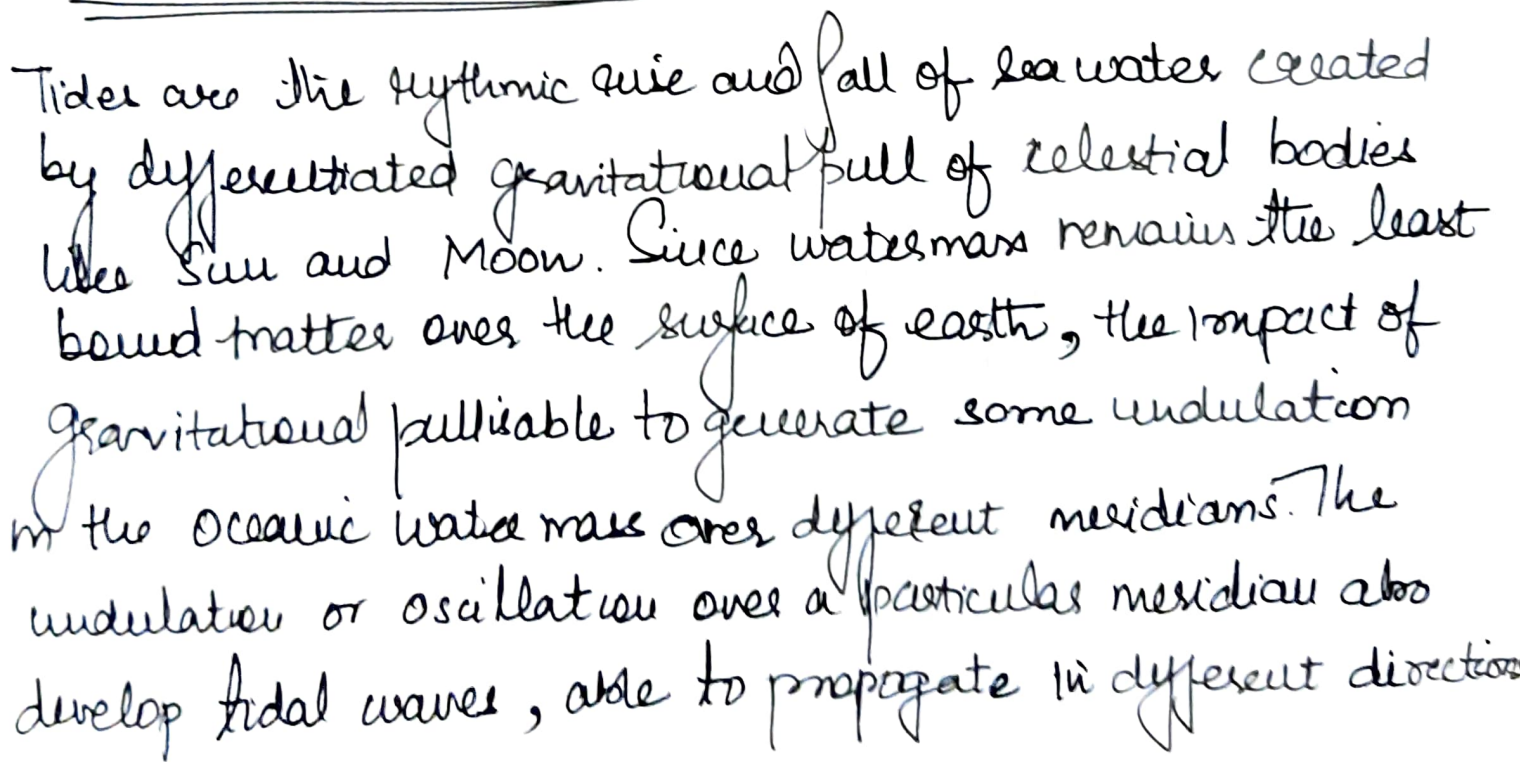 Tides are the rythmic rise and fall of sea water created
by differentiated gravitational pull of celestial bodies
like Sun and Moon. Since watermass remains the least
bound matter over the surface of earth, the impact of
gravitational pull is able to generate some undulation
in the oceanic water mass over different meridians. The
undulation or oscillation over a particular meridian also
develop tidal waves, able to propogate in different directions